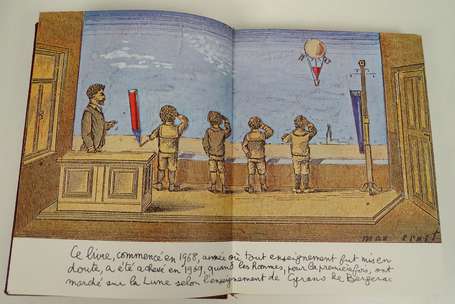 max ernst
Ce livre, commencé en 1968, année où tout enseignement fut mis en
doute, a été achevé en 1969, quand les hommes, pour la première fois, ont
marché sur la Lune selon l'enseignement de Cyrano de Bergerac